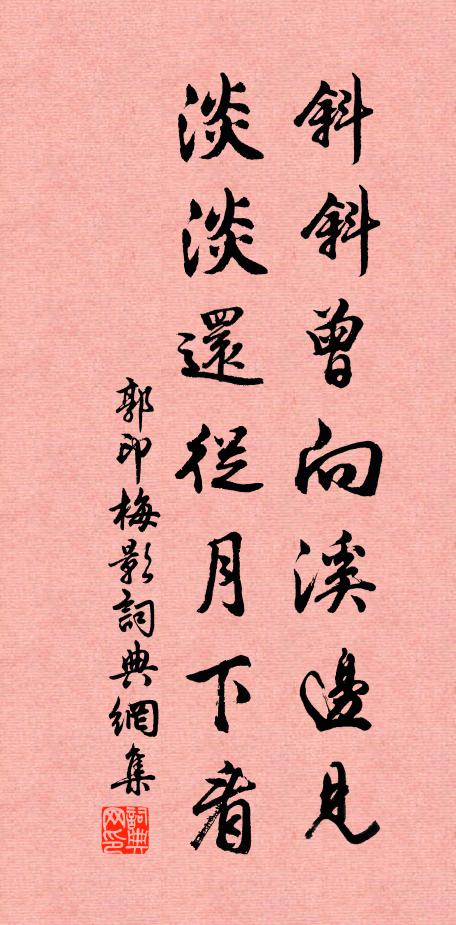 斜斜曾向溪邊見
淡淡還從月下看
郭印梅影詞典網集
詞典网印